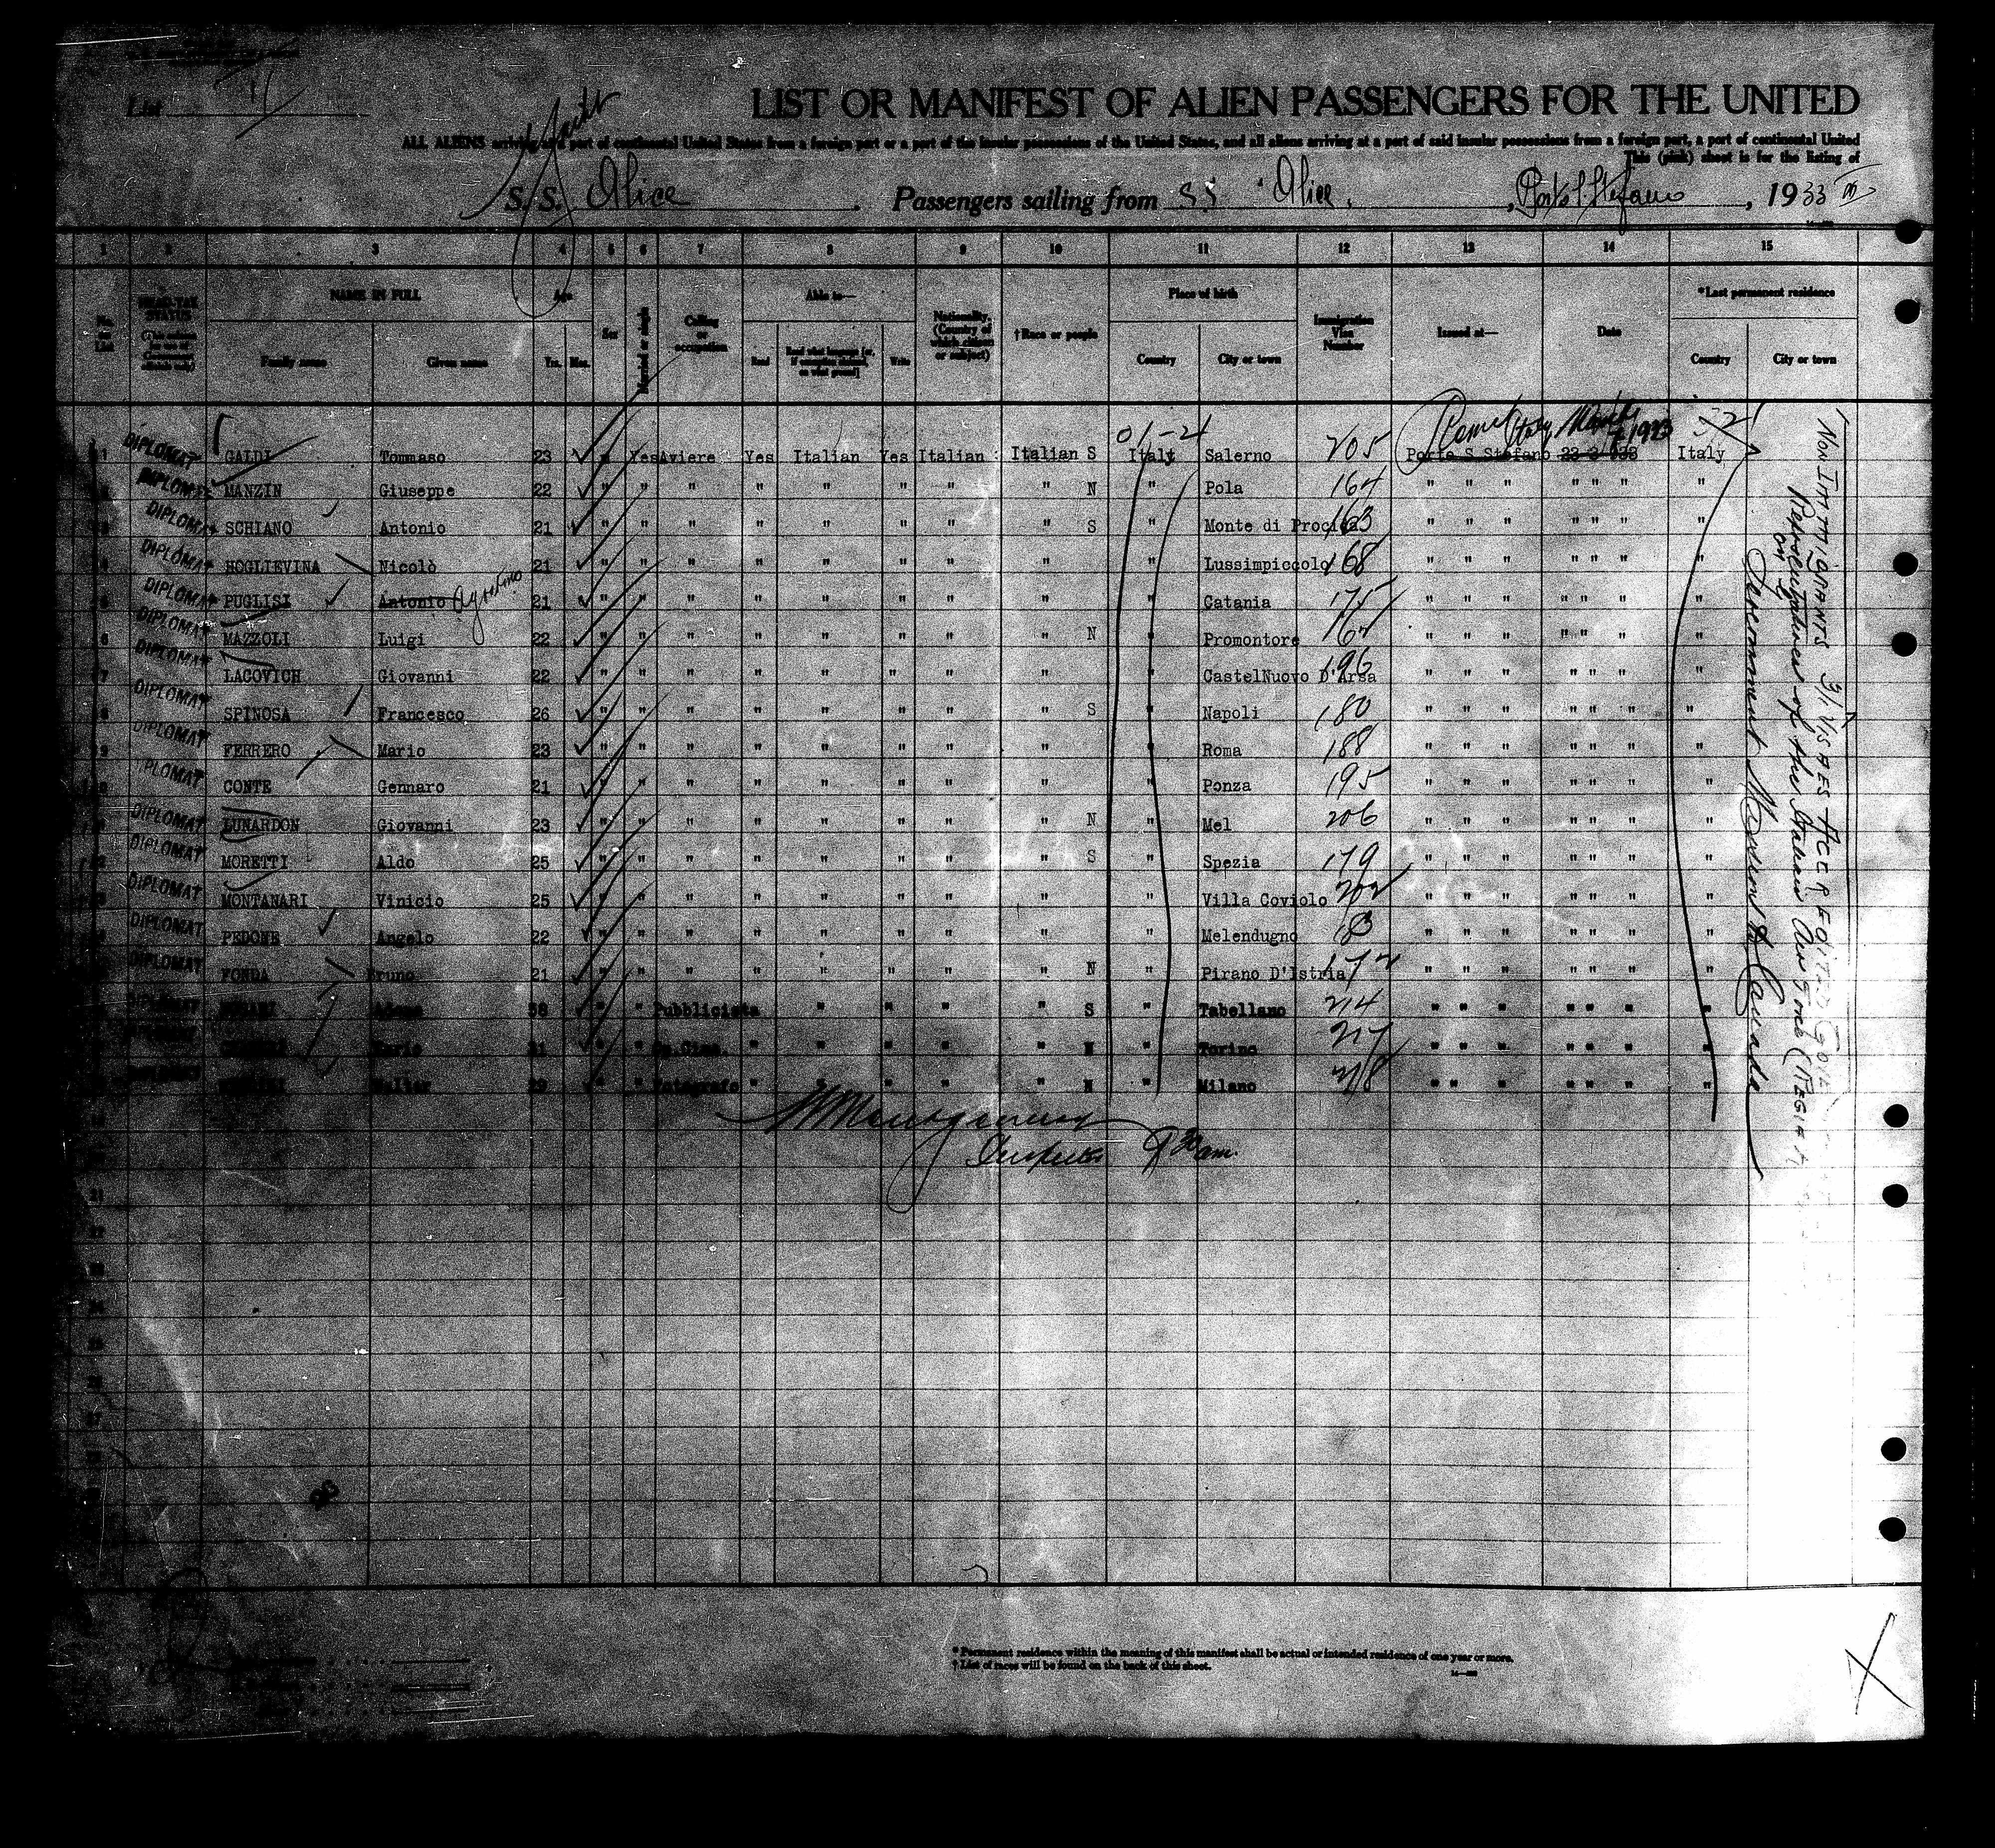 List 11
LIST OR MANIFEST OF ALIEN PASSENGERS FOR THE UNITED
ALL ALIENS arriving at a port of continental United States from a foreign port or a port of the insular possessions of the United States, and all aliens arriving at a port of said insular possessions from a foreign port, a port of continental United
This (pink) sheet is for the listing of
S. S. Alice Passengers sailing from SS Alice, Porto S. Stefano, 1933
1 2 3 4 5 6 7 8 9 10 11 12 13 14 15
No. on List
HEAD-TAX STATUS
NAME IN FULL
Family name Given name
Age
Yrs. Mos.
Sex
Married or single
Calling or occupation
Able to—
Read Read what language [or, if exemption claimed, on what ground] Write
Nationality. (Country of which citizen or subject)
†Race or people
Place of birth
Country City or town
Immigration Visa Number
Issued at—
Date
*Last permanent residence
Country City or town
01-21
Rome Italy March 1933
1 DIPLOMAT GALDI Tommaso 23 " Yes Aviere Yes Italian Yes Italian Italian S Italy Salerno 205 Porto S Stefano 23 3 933 Italy
DIPLOMAT MANZIN Giuseppe 22 " " " " " " " " N " Pola 164 " " " " " " "
DIPLOMAT SCHIANO Antonio 21 " " " " " " " " S " Monte di Procida 163 " " " " " " "
DIPLOMAT HOGLIEVINA Nicolò 21 " " " " " " " " " Lussimpiccolo 168 " " " " " " "
DIPLOMAT PUGLISI Antonio Agostino 21 " " " " " " " " " Catania 175 " " " " " " "
6 DIPLOMAT MAZZOLI Luigi 22 " " " " " " " " N " Promontore 167 " " " " " " "
7 DIPLOMAT LACOVICH Giovanni 22 " " " " " " " " " CastelNuovo D'Arsa 196 " " " " " " "
DIPLOMAT SPINOSA Francesco 26 " " " " " " " " S " Napoli 180 " " " " " " "
9 DIPLOMAT FERRERO Mario 23 " " " " " " " " " Roma 188 " " " " " " "
DIPLOMAT CONTE Gennaro 21 " " " " " " " " " Ponza 195 " " " " " " "
DIPLOMAT LUNARDON Giovanni 23 " " " " " " " " N " Mel 206 " " " " " " "
DIPLOMAT MORETTI Aldo 25 " " " " " " " " S " Spezia 179 " " " " " " "
DIPLOMAT MONTANARI Vinicio 25 " " " " " " " " " Villa Coviolo 202 " " " " " " "
DIPLOMAT PEDONE Angelo 22 " " " " " " " " " Melendugno 183 " " " " " " "
DIPLOMAT FONDA Bruno 21 " " " " " " " " N " Pirano D'Istria 172 " " " " " " "
DIPLOMAT 38 " " Pubblicista " " " " S " Tabellano 214 " " " " " " "
Mario 31 " " " " " " N " Torino 217 " " " " " " "
Walter 29 " " Fotografo " " " " " N " Milano 218 " " " " " " "
Montgomery
Inspector 9 30 am.
Non Immigrants 3/1 Visaes Accredited
Representatives of the Italian Air Force (Regia
on Government Mission to Canada
21
* Permanent residence within the meaning of this manifest shall be actual or intended residence of one year or more.
† List of races will be found on the back of this sheet.